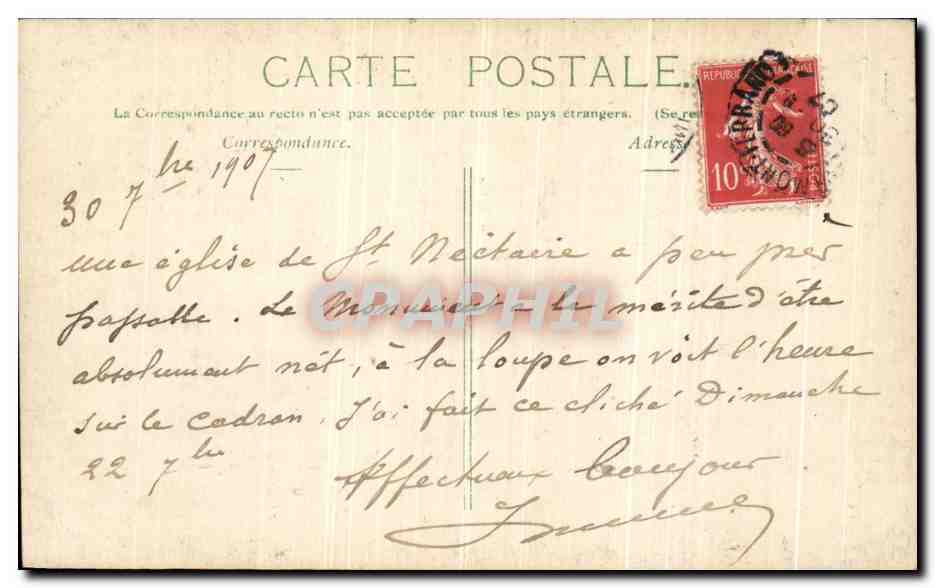 CARTE POSTALE
La Correspondance au recto n'est pas acceptée par tous les pays étrangers. (Se re
Correspondance.
Adresse
REPUBLIQUE FRANÇAISE
10
POSTES
MONT-FERRAND
30 7bre 1907
une église de St Nectaire a peu près
passable. Le Monument a le mérite d'être
absolument net, à la loupe on voit l'heure
sur le cadran. J'ai fait ce cliché Dimanche
22 7bre
Affectueux bonjour
CPAPHIL